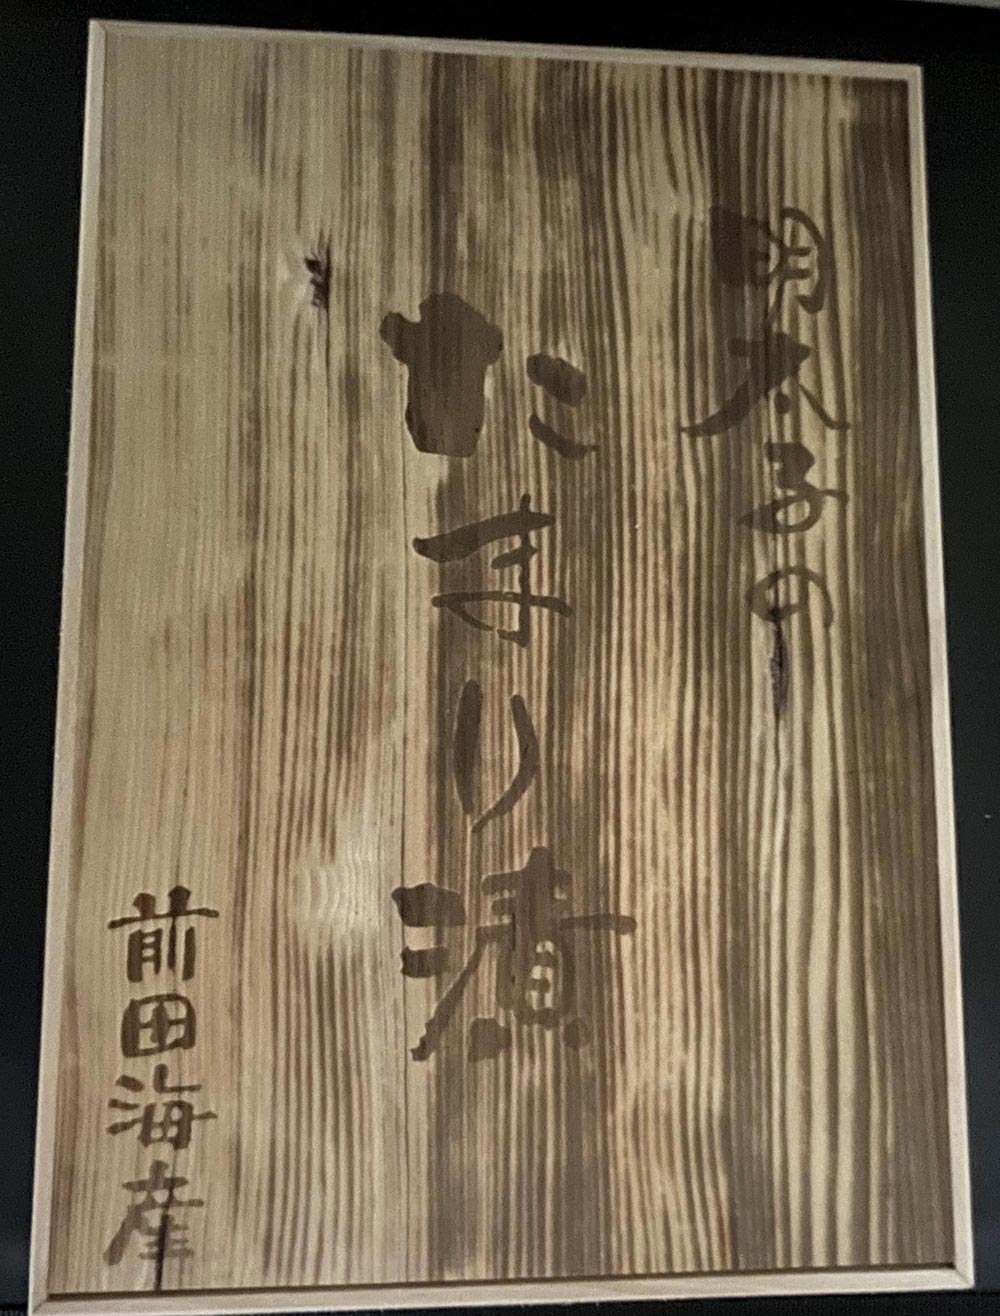 明太子の
たまり漬
前田海産